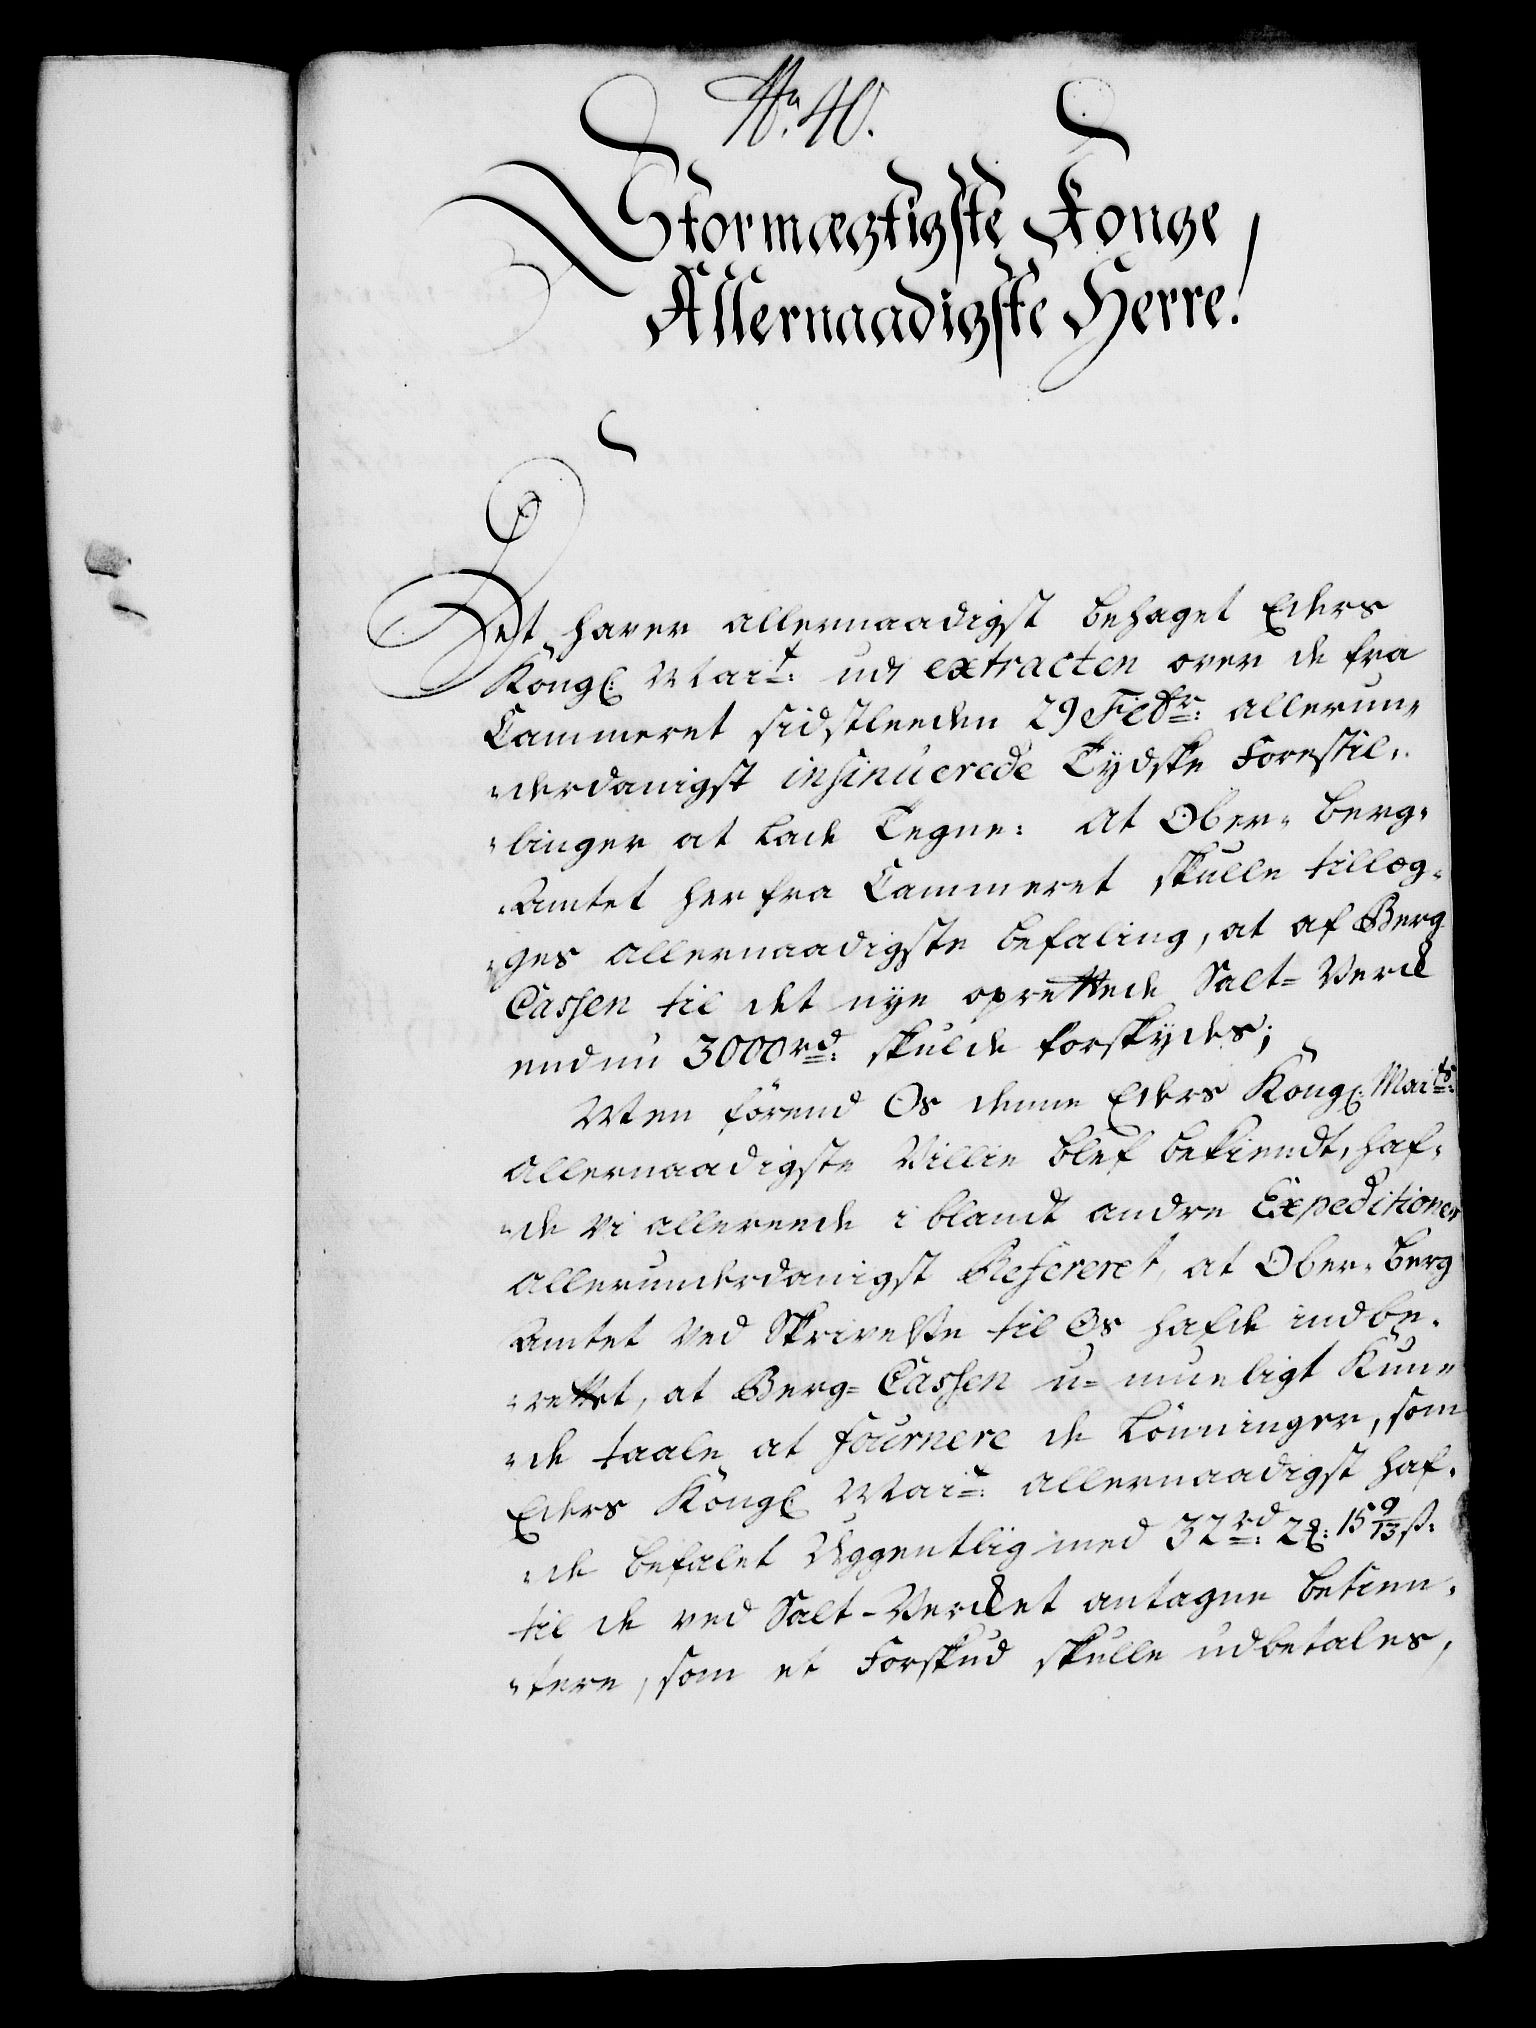 No. 40.
Stormægtigste Konge
Allernaadigste Herre!
Det haver allernaadigst behaget Eders
Kongl: Mait: udj extracten over de fra
Cammeret sidstleeden 29 Febr: allerun-
-derdanigst insinuerede Tydske Forestil-
-linger at lade Tegne: At Ober-Berg-
-Amtet her fra Cammeret skulle tillæg-
-ges allernaadigste befaling, at af Berg
Cassen til det nye oprettede Salt-Verck
endnu 3000 rd: skulde forskydes;
Men førend Os denne Eders Kongl: Maits:
allernaadigste Villie blef bekiendt, haf-
-de vi allereede iblandt andre Expeditioner
allerunderdanigst Refereret, at Ober-Berg
Amtet ved Skrivelse til Os hafde indbe-
-rettet, at Berg-Cassen u-mueligt Kun-
-de taale at fournere de Lønninger, som
Eders Kongl: Mait: allernaadigst haf-
-de befalet Uggentlig med 32 rd: 2 ℔: 15 9/13 ß:
til de ved Salt-Vercket antagne betien-
-tere, som et Forskud skulle udbetales,